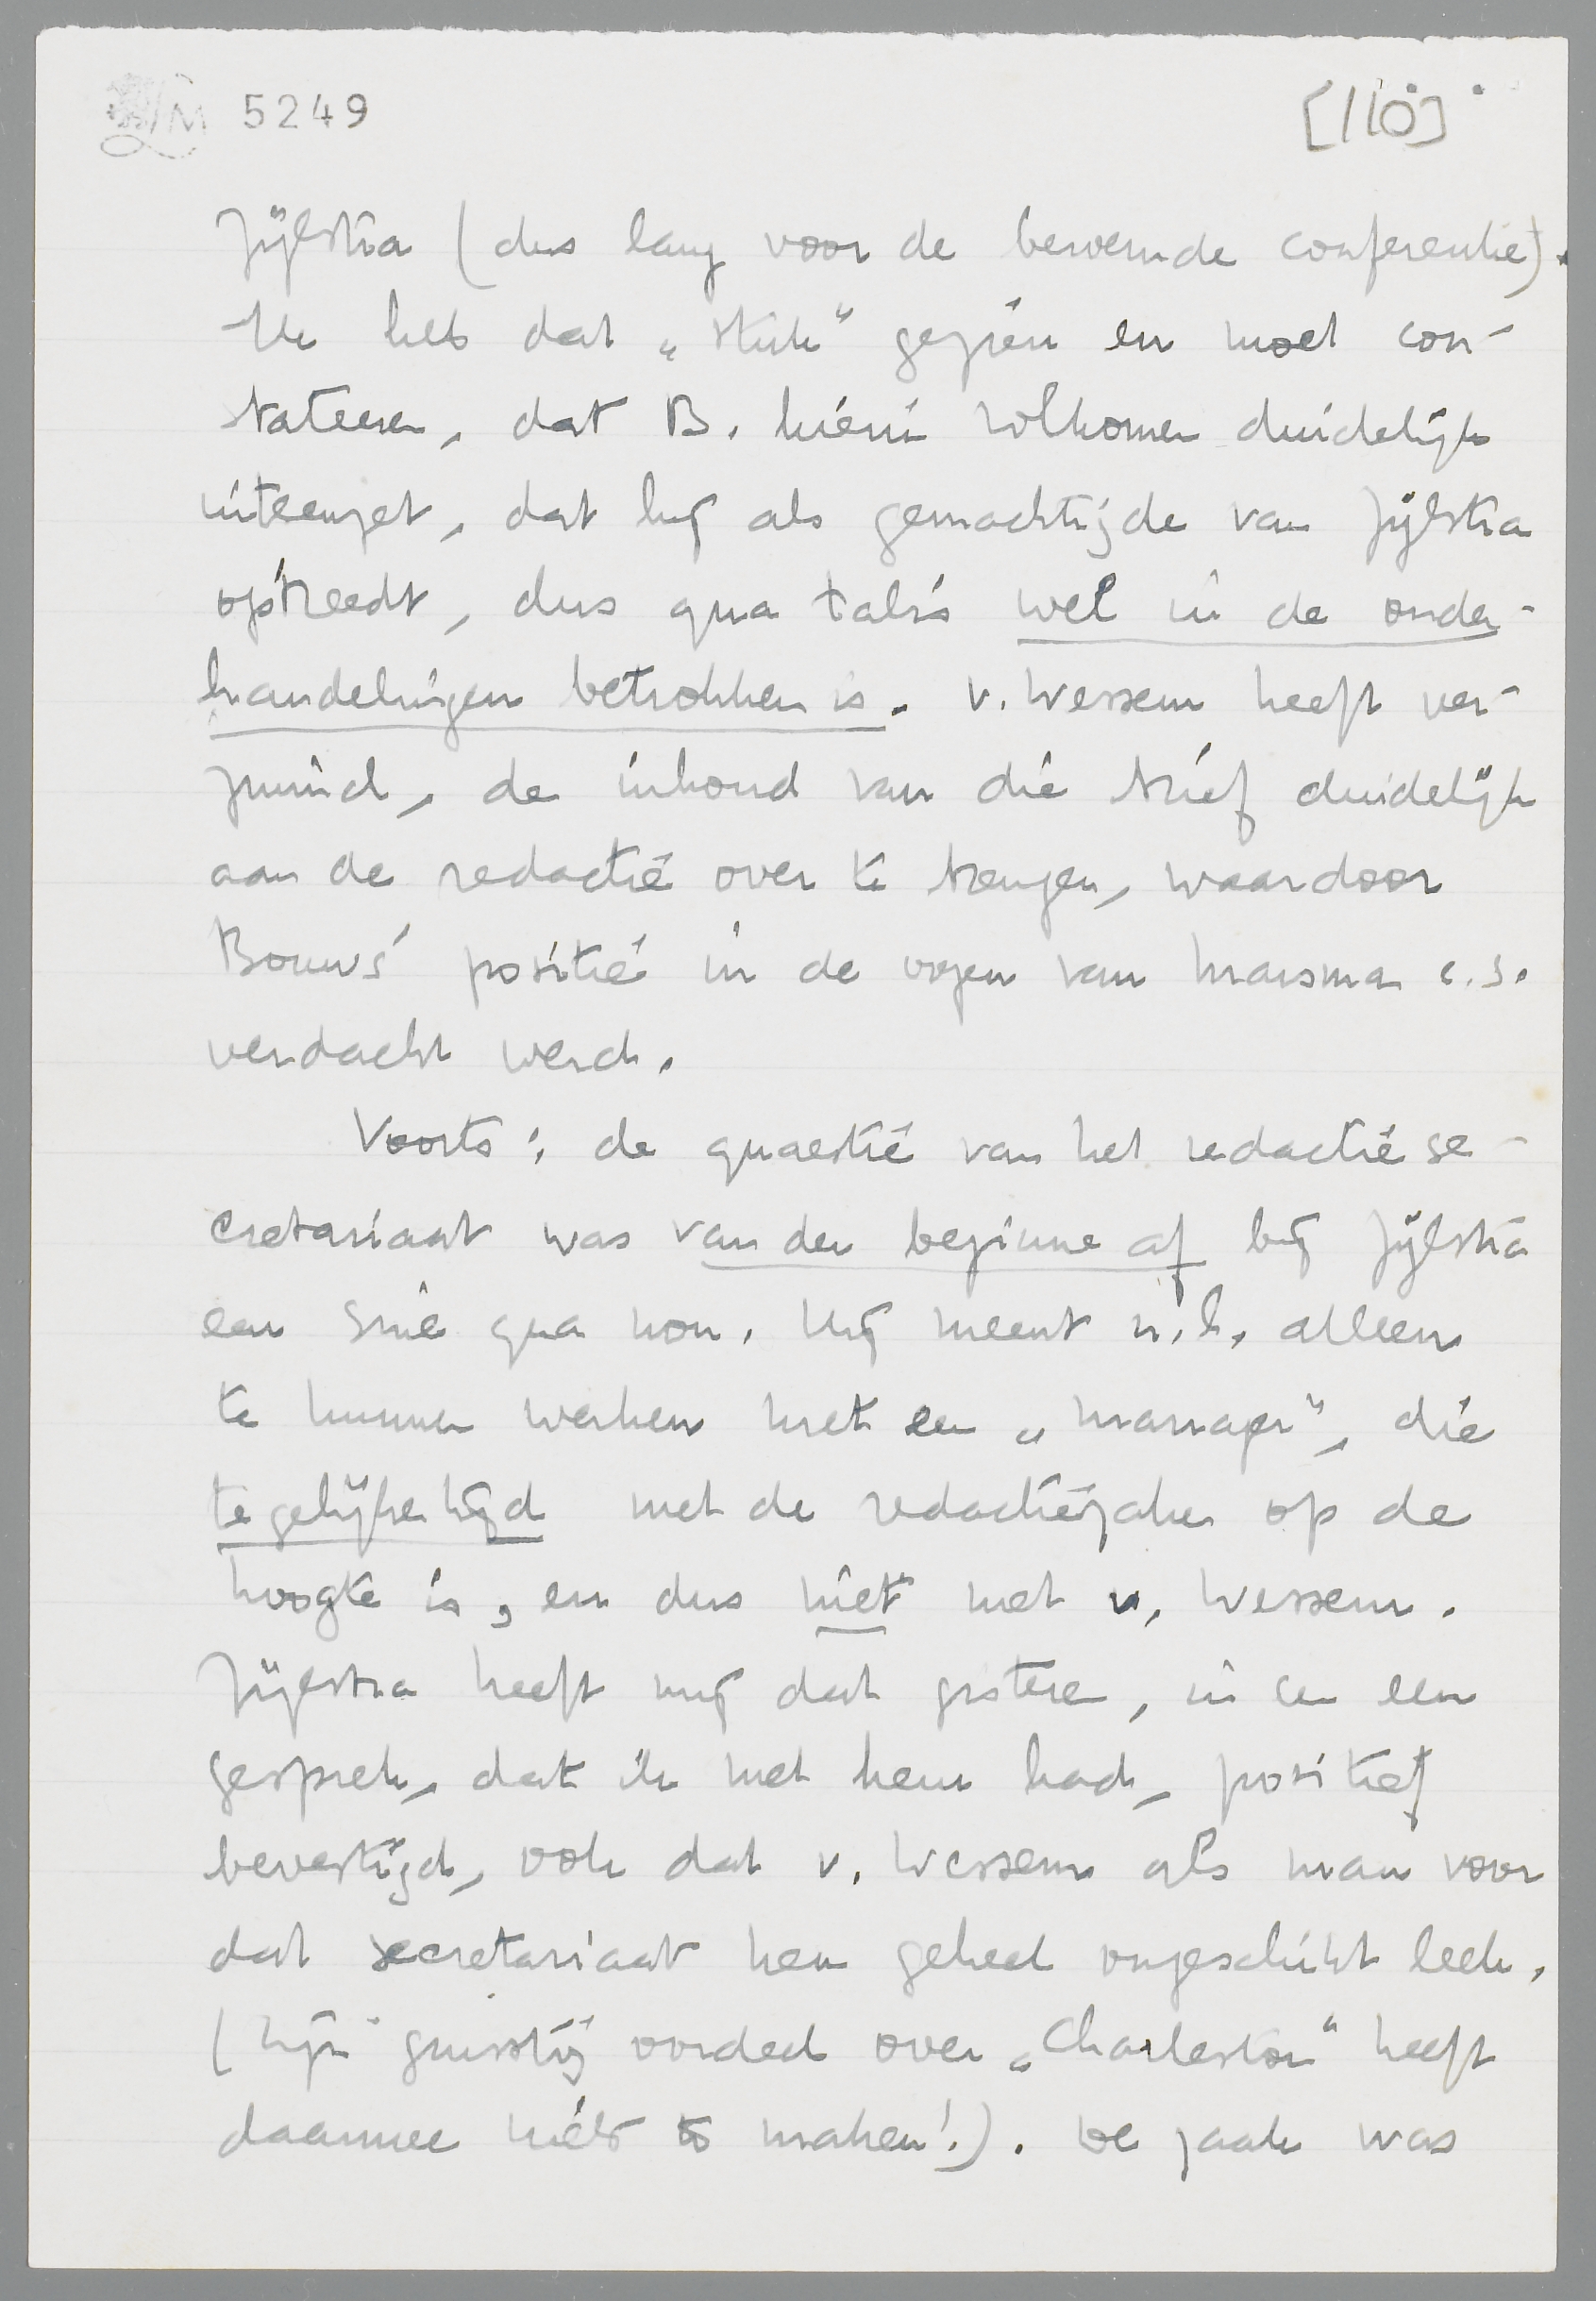 LM 5249
[110]
Zijlstra (dus lang voor de beroemde conferentie).
Ik heb dat „stuk” gezien en moet con-
stateeren, dat B. hierin volkomen duidelijk
uiteenzet, dat hij als gemachtigde van Zijlstra
optreedt, dus qua talis wel in de onder-
handelingen betrokken is. v. Wessem heeft ver-
zuimd, de inhoud van die brief duidelijk
aan de redactie over te brengen, waardoor
Bouws' positie in de oogen van Marsma c.s.
verdacht werd.
Voorts: de quaestie van het redactiese-
cretariaat was van den beginne af bij Zijlstra
een sine qua non. Hij meent n.l. alleen
te kunnen werken met een „manager”, die
tegelijkertijd met de redactiezaken op de
hoogte is, en dus niet met v. Wessem.
Zijlstra heeft mij dat gisteren, in een
gesprek, dat ik met hem had, positief
bevestigd, ook dat v. Wessem als man voor
dat secretariaat hem geheel ongeschikt leek.
(Zijn gunstig oordeel over „Charleston” heeft
daarmee niets te maken!). De zaak was